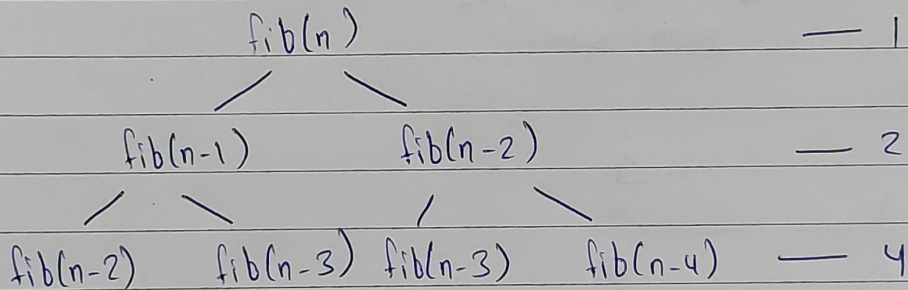 fib(n) — 1
fib(n-1) fib(n-2) — 2
fib(n-2) fib(n-3) fib(n-3) fib(n-4) — 4